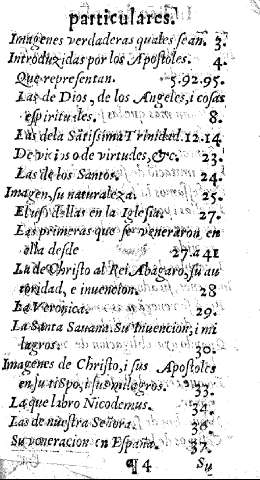 particulares.
Imagenes verdaderas quales seañ. 3.
Introduzidas por los Apostoles. 4.
Que representan. 5.92.95.
Las de Dios, de los Angeles, i cosas
espirituales. 8.
Las dela Sātissima Trinidad. 12.14
De vicios o de virtudes, &c. 23.
Las de los Santos. 24.
Imagen, su naturaleza. 25.
El uso dellas en la Iglesia. 27.
Las primeras que se veneraron en
ella desde 27. a 41
La de Christo al Rei Abagaro, su au
toridad, e invencion. 28
La Veronica. 29.
La Santa Savana. Su Invencion, i mi
lagros. 30.
Imagenes de Christo, i sus Apostoles
en su tiēpo, i sus milagros. 33.
La que libro Nicodemus. 34.
Las de nuestra Señora. 36
Su veneracion en España. 37.
¶ 4 Su